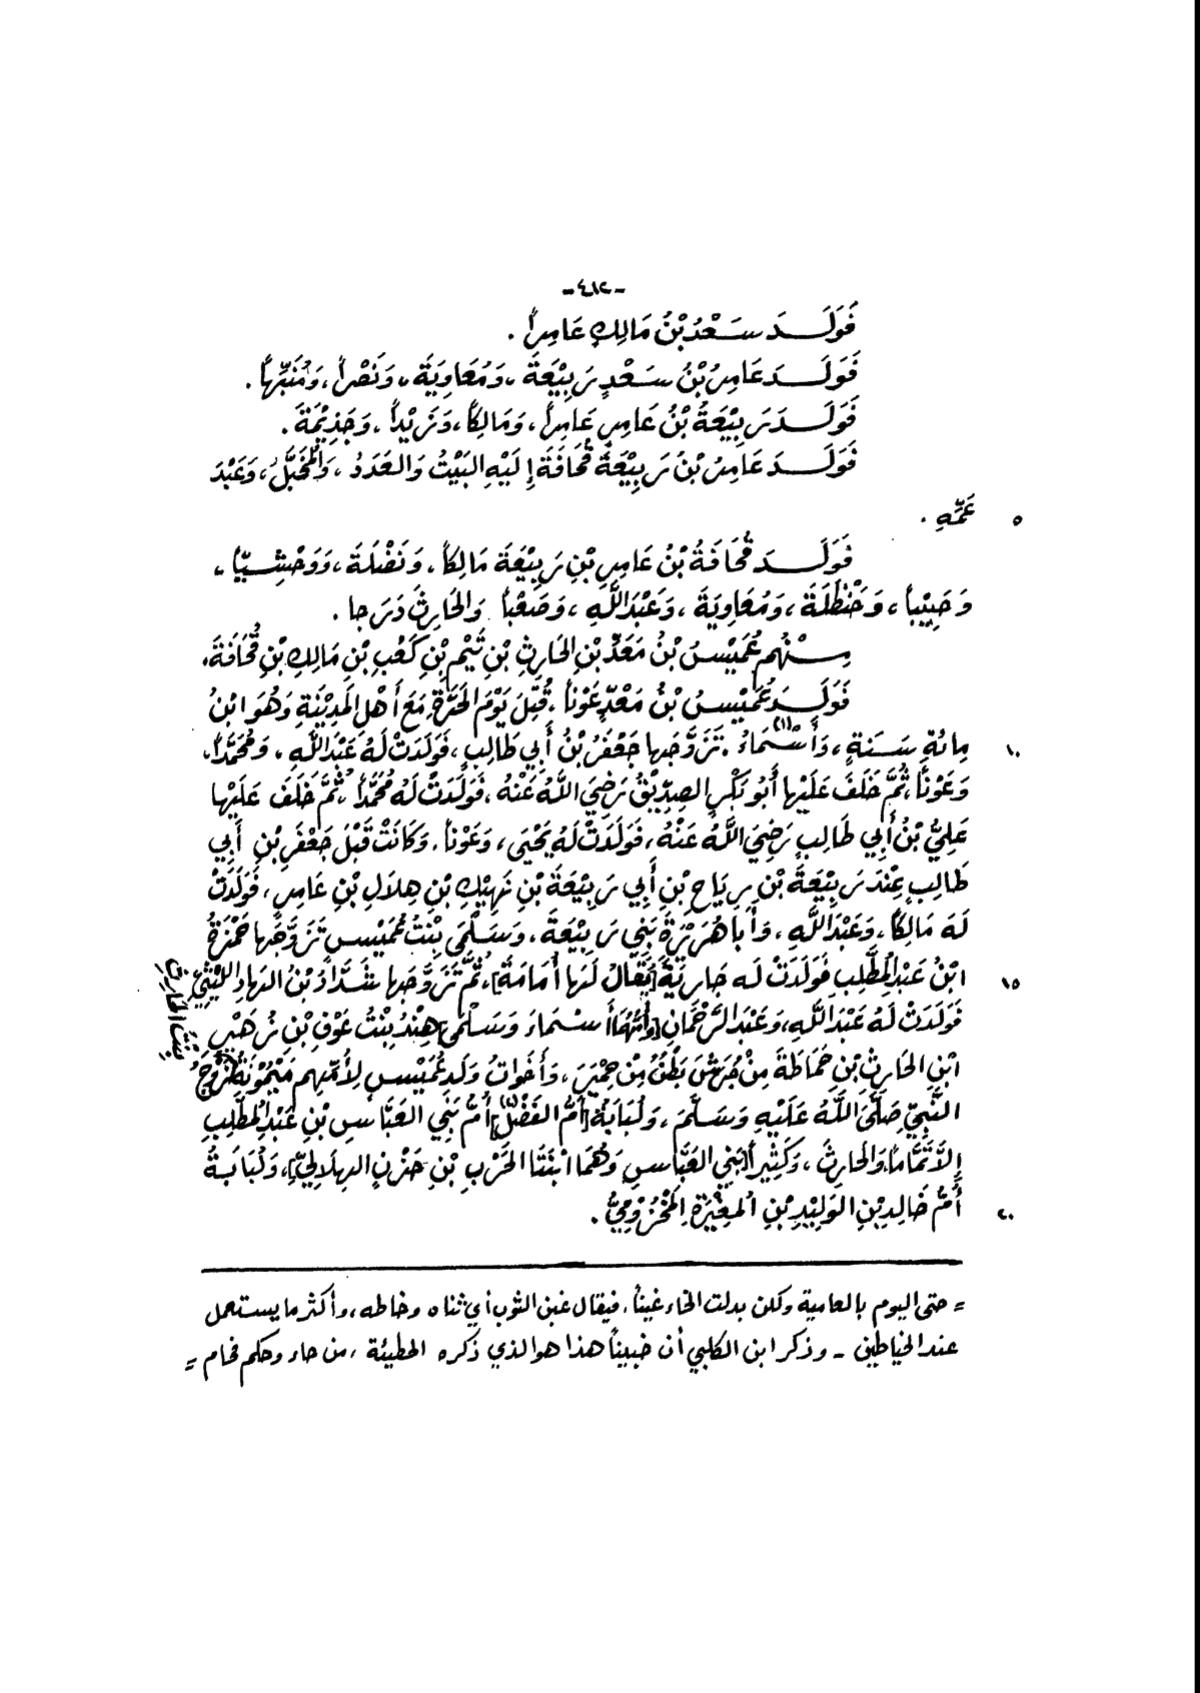 -٤١٢-
فَوَلَـــدَ سَـعْدُ بْنُ مَالِكٍ عَامِراً .
فَوَلَـــدَ عَامِرُ بْنُ سَـعْدٍ رَبِيْعَةَ ، وَمُعَاوِيَةَ ، وَنَصْراً ، وَمُنَبِّهاً .
فَوَلَـــدَ رَبِيْعَةُ بْنُ عَامِرٍ عَامِراً ، وَمَالِكاً ، وَزَيْداً ، وَجَذِيْمَةَ .
فَوَلَـــدَ عَامِرُ بْنُ رَبِيْعَةَ قُحَافَةَ إِلَيْهِ البَيْتُ وَالعَدَدُ ، وَالمُخَبَّلَ ، وَعَبْدَ
٥ عَمِّهِ .
فَوَلَـــدَ قُحَافَةُ بْنُ عَامِرِ بْنِ رَبِيْعَةَ مَالِكاً ، وَنَضْلَةَ ، وَوَحْشِـــيّاً ،
وَحَبِيْباً ، وَحَنْظَلَةَ ، وَمُعَاوِيَةَ ، وَعَبْدَاللَّهِ ، وَصَعْباً وَالحَارِثَ دَرَجا .
مِـــنْهُم عُمَيْسُ بْنُ مَعَدِّ بْنِ الحَارِثِ بْنِ تَيْمِ بْنِ كَعْبِ بْنِ مَالِكِ بْنِ قُحَافَةَ ،
فَوَلَـــدَ عُمَيْسُ بْنُ مَعْدٍّ عَوْناً ، قُتِلَ يَوْمَ الحَرَّةِ مَعَ أَهْلِ المَدِيْنَةِ وَهُوَ ابْنُ
١٠ مِائَةِ سَـنَةٍ ، وَأَسْمَاءُ(١) . تَزَوَّجَها جَعْفَرُ بْنُ أَبِي طَالِبٍ ، فَوَلَدَتْ لَهُ عَبْدَاللَّهِ ، وَمُحَمَّداً،
وَعَوْناً ، ثُمَّ خَلَفَ عَلَيْها أَبُو بَكْرٍ الصِدِّيْقُ رَضِيَ اللَّهُ عَنْهُ ، فَوَلَدَتْ لَهُ مُحَمَّداً ، ثُمَّ خَلَفَ عَلَيْها
عَلِيُّ بْنُ أَبِي طَالِبٍ رَضِيَ اللَّهُ عَنْهُ ، فَوَلَدَتْ لَهُ يَحْيَى ، وَعَوْناً . وَكَانَتْ قَبْلَ جَعْفَرِ بْنِ أَبِي
طَالِبٍ عِنْدَ رَبِيْعَةَ بْنِ رِيَاحِ بْنِ أَبِي رَبِيْعَةَ بْنِ نَهِيْكِ بْنِ هِلَالِ بْنِ عَامِرٍ ، فَوَلَدَتْ
لَهُ مَالِكاً ، وَعَبْدَاللَّهِ ، وَأَبا هُرَيْرَةَ بَنِي رَبِيْعَةَ ، وَسَـلْمَى بِنْتُ عُمَيْسٍ تَزَوَّجَها حَمْزَةُ
١٥ ابْنُ عَبْدِ المُطَّلِبِ فَوَلَدَتْ لَه جَارِيَةً [يُقَالُ لَهَا أُمَامَةُ] ، ثُمَّ تَزَوَّجَها شَـدَّادُ بْنُ الهَادِ اللَّيْثِيُّ
فَوَلَدَتْ لَهُ عَبْدَاللَّهِ ، وَعَبْدَ الرَّحْمَانِ [وَأُمُّهُمَا أَسْـمَاءَ وَسَـلْمَى] هِنْدُ بِنْتُ عَوْفِ بْنِ زُهَيْرِ
ابْنِ الحَارِثِ بْنِ حَمَاطَةَ مِنْ جُرَشَ بَطْنٌ مِنْ حِمْيَرَ ، وَأَخَوَاتُ وَلَدِ عُمَيْسٍ لِأُمِّهِم مَيْمُوْنَةُ زَوْجُ
بِنْتُ الحَارِثِ
النَّبِيِّ صَلَّى اللَّهُ عَلَيْهِ وَسَـلَّمَ ، وَلُبَابَةُ [أُمُّ الفَضْلِ] أُمُّ بَنِي العَبَّاسِ بْنِ عَبْدِ المُطَّلِبِ
إِلَّا تَمَّاماً وَالحَارِثَ ، وَكَثِيْراً [بَنِي العَبَّاسِ وَهُمَا ابْنَتَا الحَرْبِ بْنِ حَزْنٍ الهِلَالِيِّ] ، وَلُبَابَةُ
٢٠ أُمُّ خَالِدِ بْنِ الوَلِيْدِ بْنِ المُغِيْرَةِ المَخْزُوْمِيُّ .
= حتى اليوم بالعامية ولكن بدلت الخاء غيناً ، فيقال غبن الثوب أي ثناه وخاطه ، وأكثر ما يستعمل
عند الخياطين - وذكر ابن الكلبي أن خبيناً هذا هو الذي ذكره الحطيئة ، من حاء وحكم فحام =